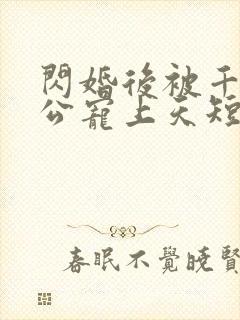 閃婚後被千
公寵上天短
春眠不覺曉賢